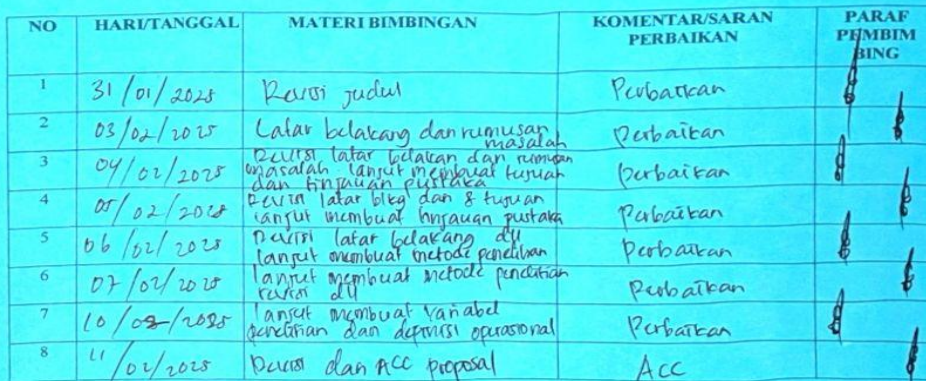 NO HARI/TANGGAL MATERI BIMBINGAN KOMENTAR/SARAN PERBAIKAN PARAF PEMBIM BING
1 31/01/2025 Revisi judul Perbaikan
2 03/02/2025 Latar belakang dan rumusan masalah Perbaikan
3 04/02/2025 Revisi latar belakan dan rumusan
masalah. lanjut membuat tujuan
dan tinjauan pustaka Perbaikan
4 05/02/2025 Revisi latar blkg dan tujuan
lanjut membuat tinjauan pustaka Perbaikan
5 06/02/2025 Revisi latar belakang dll
lanjut membuat metode penelitian Perbaikan
6 07/02/2025 lanjut membuat metode penelitian
revisi dll Perbaikan
7 10/02/2025 lanjut membuat variabel
penelitian dan definisi operasional Perbaikan
8 11/02/2025 Revisi dan ACC proposal ACC